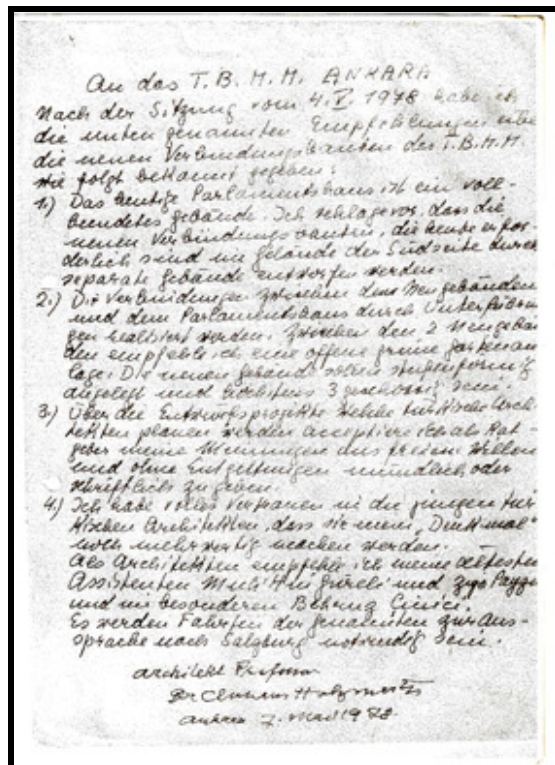 An das T.B.M.M. ANKARA
Nach der Sitzung vom 4.V. 1978 habe ich
die unten genannten Empfehlungen über
die neuen Verbindungsbauten des T.B.M.M.
wie folgt bekannt gegeben:
1.) Das heutige Parlamentshaus ist ein voll-
endetes gebäude. Ich schlage vor, dass die
neuen Verbindungsbauten, die heute erfor-
derlich sind im gelände der Südseite durch
separate gebäude entworfen werden.
2.) Die Verbindungen zwischen den Neugebäuden
und dem Parlamentshaus durch Unterführun-
gen realisiert werden. Zwischen den 2 Neugebäu
den empfehle ich eine offene grüne gartenan
lage. Die neuen gebäude sollen stufenförmig
angelegt und höchstens 3 geschossig sein.
3.) Über die Entwurfsprojekte welche türkische Arch
itekten planen werden acceptiere ich als Rat-
geber meine Meinungen aus freiem Willen
und ohne Entgeltungen mündlich oder
schriftlich zu geben.
4.) Ich habe volles Vertrauen in die jungen tür
kischen Architekten, dass sie mein "Denkmal"
noch mehrwertig machen werden.
Als Architekten empfehle ich meine ältesten
Assistenten und Ziya Payzin
und im besonderen Behruz Çinici.
Es werden Fahrten der genannten zur Aus-
sprache nach Salzburg notwendig sein.
architekt Professor
Dr Clemens Holzmeister
Ankara 7. Mai 1978.